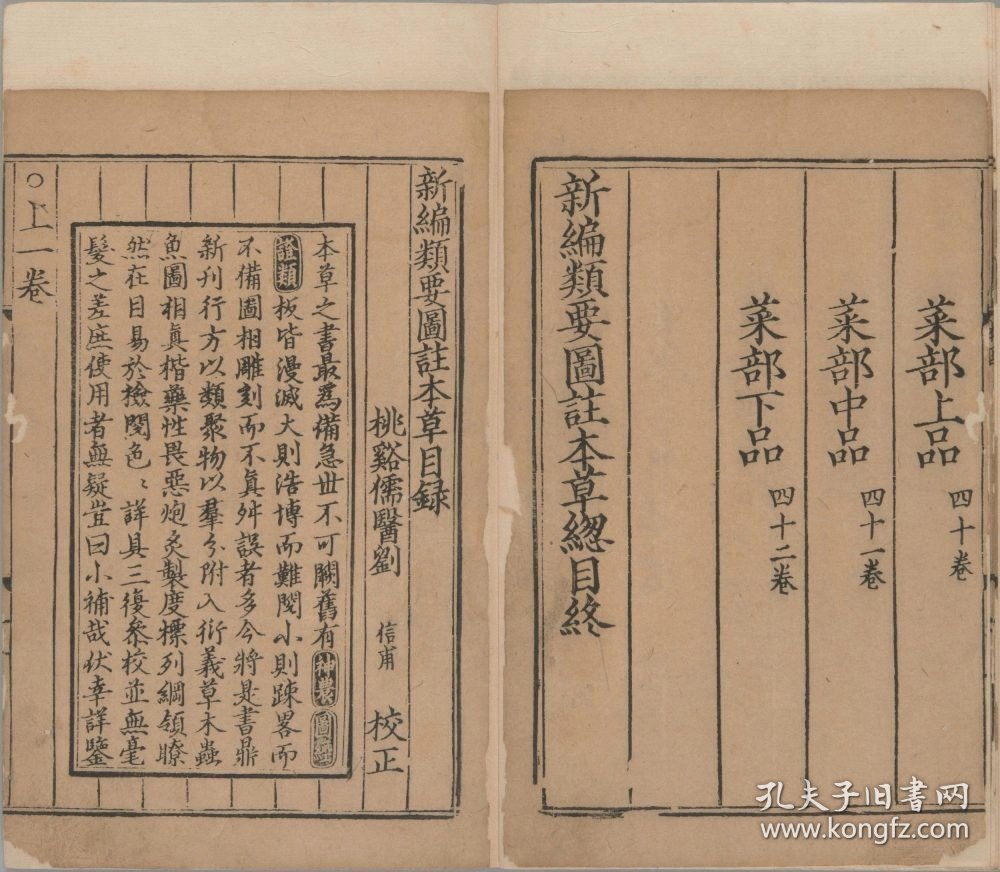 菜部上品 四十卷
菜部中品 四十一卷
菜部下品 四十二卷
新編類要圖註本草緫目終
新編類要圖註本草目録
桃谿儒醫劉 信甫 校正
本草之書最爲備急世不可闕舊有神農圖經
證類板皆漫滅大則浩博而難閱小則踈畧而
不備圖相雕刻而不眞舛誤者多今將是書鼎
新刊行方以類聚物以羣分附入衍義草木蟲
魚圖相眞楷藥性畏惡炮炙製度標列綱領瞭
然在目易於檢閱色〻詳具三復參校並無毫
髮之差庶使用者無疑豈曰小補哉伏幸詳鑒
○上一卷
孔夫子旧书网
www.kongfz.com